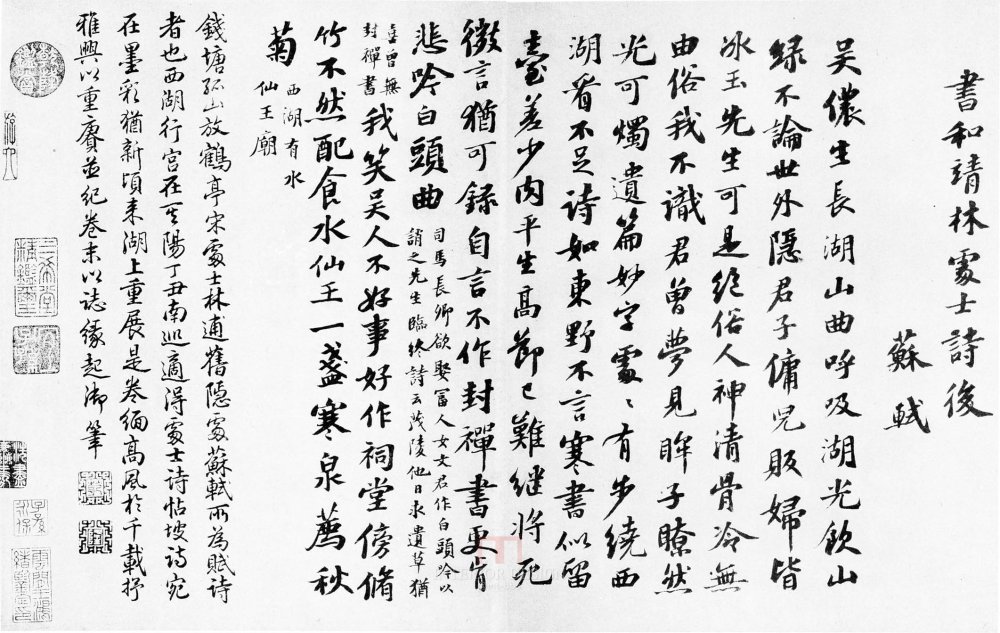 書和靖林處士詩後
蘇軾
吳儂生長湖山曲呼吸湖光飲山
緑不論世外隱君子傭兒販婦皆
冰玉先生可是絕俗人神清骨冷無
由俗我不識君曾夢見眸子瞭然
光可燭遺篇妙字處〻有步繞西
湖看不足詩如東野不言寒書似留
臺差少肉平生高節已難継將死
微言猶可録自言不作封禪書更肯
悲吟白頭曲
司馬長卿欲娶富人女文君作白頭吟以
誚之先生臨終詩云茂陵他日求遺草猶
喜曾無
封禪書
我笑吳人不好事好作祠堂傍脩
竹不然配食水仙王一盞寒泉薦秋
菊
西湖有水
仙王廟
錢塘孤山放鶴亭宋處士林逋舊隱處蘇軾所為賦詩
者也西湖行宮在其陽丁丑南巡適得處士詩帖坡詩宛
在墨彩猶新頃來湖上重展是卷緬高風於千載抒
雅興以重賡並紀卷末以誌緣起御筆
三希堂
精鑑璽